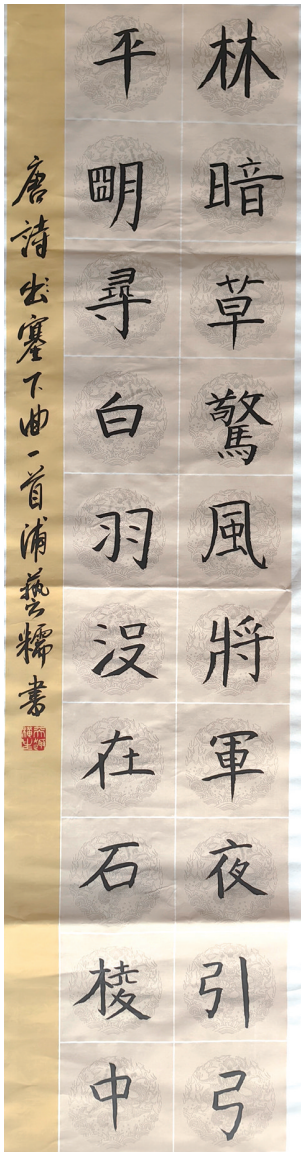 林暗草驚風將軍夜引弓
平明尋白羽沒在石棱中
唐詩出塞下曲一首浦藝糯書